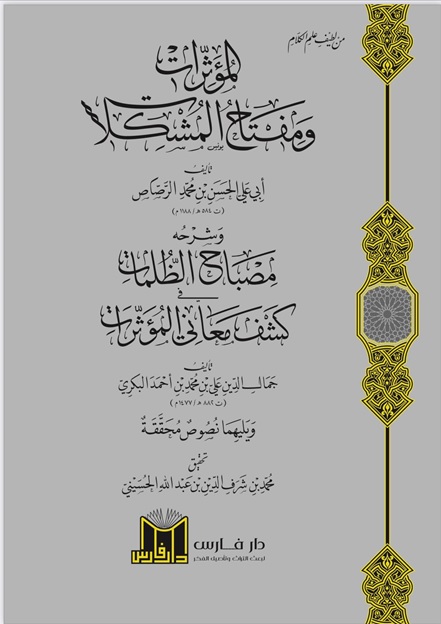 من لطيف علم الكلام
المؤثرات
ومفتاح المشكلات
تأليف
أبي علي الحسن بن محمد الرصاص
(ت ٥٨٤ هـ / ١١٨٨ م)
وشرحه
مصباح الظلمات
في
كشف معاني المؤثرات
تأليف
جمال الدين علي بن محمد بن أحمد البكري
(ت ٨٨٢ هـ / ١٤٧٧ م)
ويليهما نصوص محققة
تحقيق
محمد بن شرف الدين بن عبد الله الحسيني
دار فارس
دار فارس
لبعث التراث وتأصيل الفكر